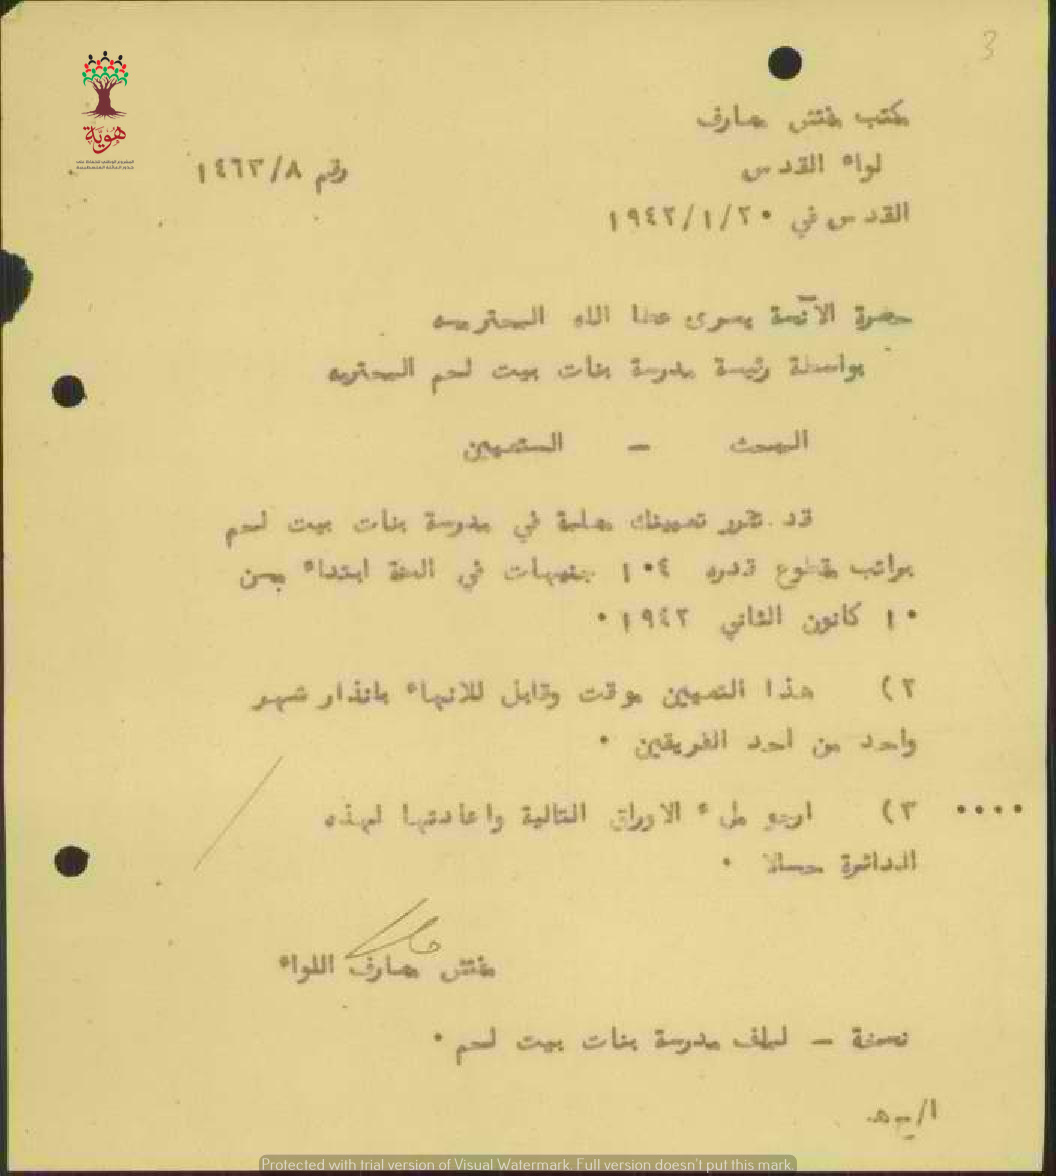 3
مكتب مفتش معارف
لواء القدس
رقم ١٤٦٣/٨
القدس في ١٩٤٢/١/٢٠
حضرة الآنسة يسرى عطا الله المحترمه
بواسطة رئيسة مدرسة بنات بيت لحم المحترمه
المبحث – التعيين
قد تقرر تعيينك معلمة في مدرسة بنات بيت لحم
براتب مقطوع قدره ١٠٤ جنيهات في السنة ابتداء من
١٠ كانون الثاني ١٩٤٢ ٠
٢) هذا التعيين موقت وقابل للانهاء بانذار شهر
واحد من احد الفريقين ٠
٠٠٠٠ ٣) ارجو ملء الاوراق التالية واعادتها لهذه
الدائرة حالا ٠
مفتش معارف اللواء
نسخة – لملف مدرسة بنات بيت لحم ٠
هوية
Protected with trial version of Visual Watermark. Full version doesn't put this mark.